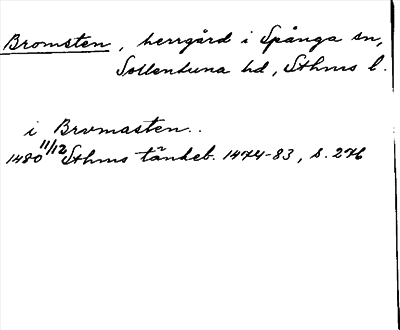 Bromsten, herrgård i Spånga sn,
Sollentuna hd, Sthms l.
i Brvmasten..
1480 11/12 Sthms tänkeb. 1474-83, s. 276